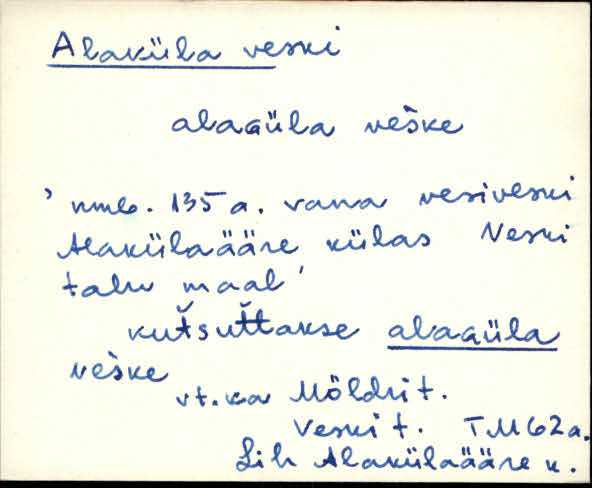 Alaküla veski
alaGüla vèške
' umb. 135 a. vana vesiveski
Alakülaääre külas Veski
talu maal '
kut̆sut̆takse alaGüla
vèške
vt. ka Möldri t.
Veski t. TM 62 a.
Lih Alakülaääre k.